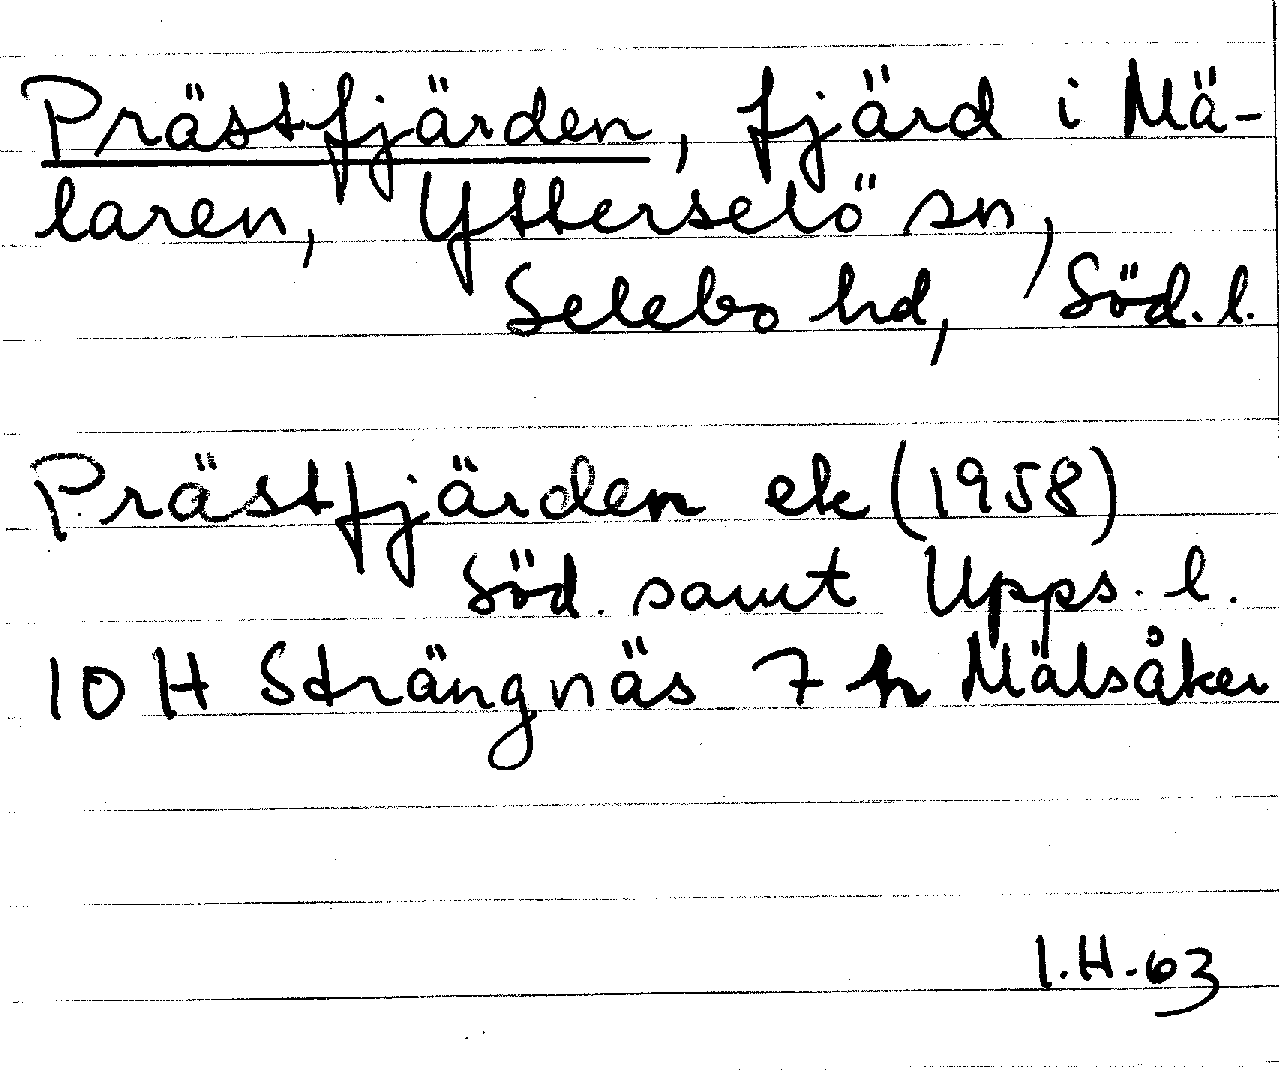 Prästfjärden, fjärd i Mä-
laren, Ytterselö sn,
Selebo hd, Söd. l.
Prästfjärden ek (1958)
Söd. samt Upps. l.
10 H Strängnäs 7 h Mälsåker
I.H.-63